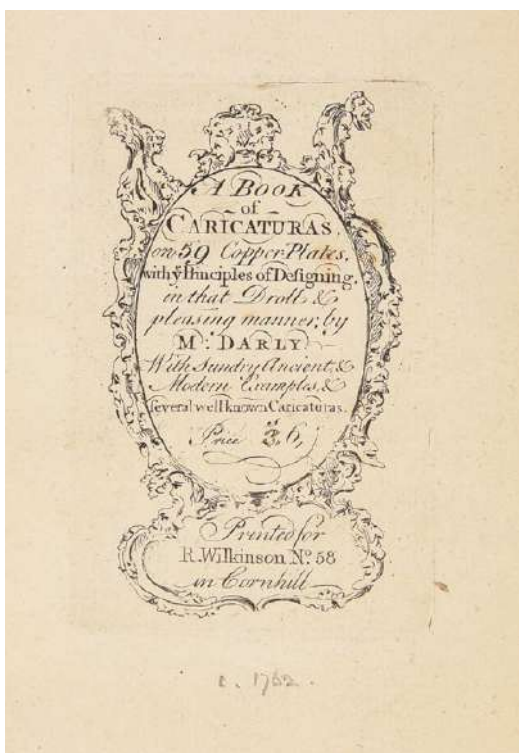 A BOOK
of
CARICATURAS,
on 59 Copper-Plates,
with yͤ Principles of Designing,
in that Droll &
pleasing manner, by
M: DARLY
With Sundry Ancient &
Modern Examples, &
several well known Caricaturas.
Price 3,6,
Printed for
R. Wilkinson Nº. 58
in Cornhill
c. 1762.